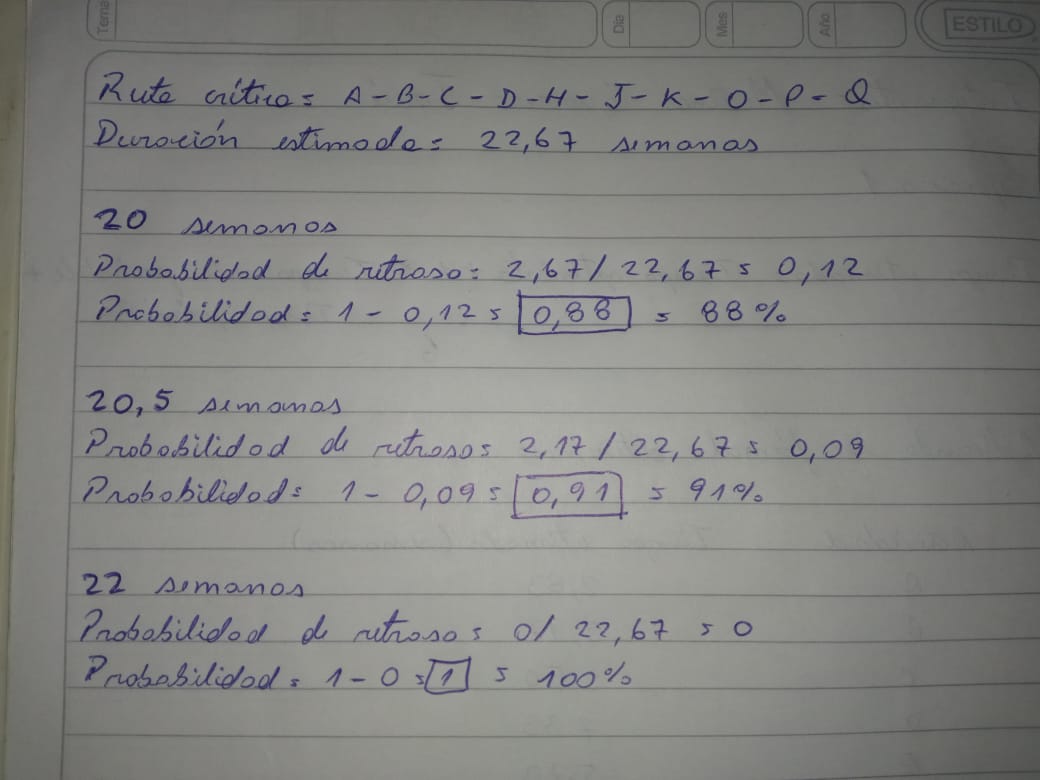 Tema
Día
Mes
Año
ESTILO
Ruta crítica = A - B - C - D - H - J - K - O - P - Q
Duración estimada = 22,67 semanas
20 semanas
Probabilidad de retraso = 2,67 / 22,67 = 0,12
Probabilidad = 1 - 0,12 = 0,88 = 88%
20,5 semanas
Probabilidad de retraso = 2,17 / 22,67 = 0,09
Probabilidad = 1 - 0,09 = 0,91 = 91%
22 semanas
Probabilidad de retraso = 0 / 22,67 = 0
Probabilidad = 1 - 0 = 1 = 100%